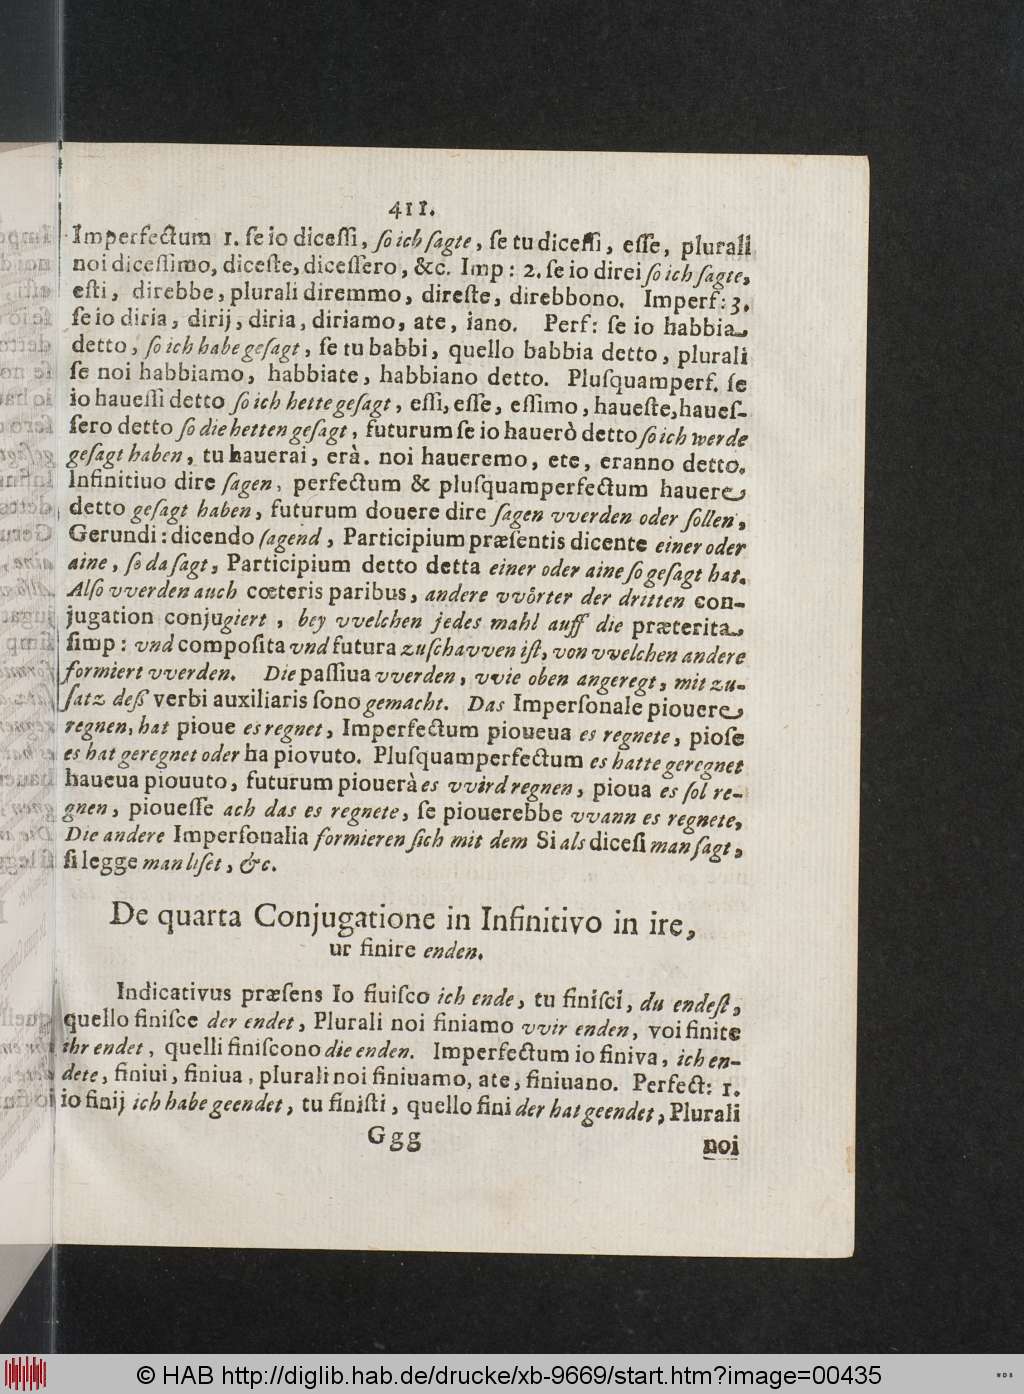 411.
Imperfectum 1. ſe io diceſſi, ſo ich ſagte, ſe tu diceſſi, eſſe, plurali
noi diceſſimo, diceſte, diceſſero, &c. Imp: 2. ſe io direi ſo ich ſagte,
eſti, direbbe, plurali diremmo, direſte, direbbono. Imperf: 3.
ſe io diria, dirij, diria, diriamo, ate, iano. Perf: ſe io habbia
detto, ſo ich habe geſagt, ſe tu babbi, quello babbia detto, plurali
ſe noi habbiamo, habbiate, habbiano detto. Pluſquamperf. ſe
io haueſſi detto ſo ich hette geſagt, eſſi, eſſe, eſſimo, haueſte, haueſ-
ſero detto ſo die hetten geſagt, futurum ſe io hauerò detto ſo ich werde
geſagt haben, tu hauerai, erà. noi haueremo, ete, eranno detto.
Infinitiuo dire ſagen, perfectum & pluſquamperfectum hauere
detto geſagt haben, futurum douere dire ſagen vverden oder ſollen,
Gerundi: dicendo ſagend, Participium præſentis dicente einer oder
aine, ſo da ſagt, Participium detto detta einer oder aine ſo geſagt hat.
Alſo vverden auch cœteris paribus, andere vvörter der dritten con-
jugation conjugiert, bey vvelchen jedes mahl auff die præterita
ſimp: vnd compoſita vnd futura zuſchavven iſt, von vvelchen andere
formiert vverden. Die paſſiua vverden, vvie oben angeregt, mit zu-
ſatz deß verbi auxiliaris ſono gemacht. Das Imperſonale piouere
regnen, hat pioue es regnet, Imperfectum pioueua es regnete, pioſe
es hat geregnet oder ha piovuto. Pluſquamperfectum es hatte geregnet
haueua piouuto, futurum piouerà es vvird regnen, pioua es ſol re-
gnen, pioueſſe ach das es regnete, ſe piouerebbe vvann es regnete,
Die andere Imperſoualia formieren ſich mit dem Si als diceſi man ſagt,
ſi legge man liſet, &c.
De quarta Conjugatione in Infinitivo in ire,
ur finire enden.
Indicativus præſens Io fiuiſco ich ende, tu finiſci, du endeſt,
quello finiſce der endet, Plurali noi finiamo vvir enden, voi finite
ihr endet, quelli finiſcono die enden. Imperfectum io finiva, ich en-
dete, finiui, finiua, plurali noi finiuamo, ate, finiuano. Perfect: 1.
io finij ich habe geendet, tu finiſti, quello fini der hat geendet, Plurali
Ggg
noi
© HAB http://diglib.hab.de/drucke/xb-9669/start.htm?image=00435